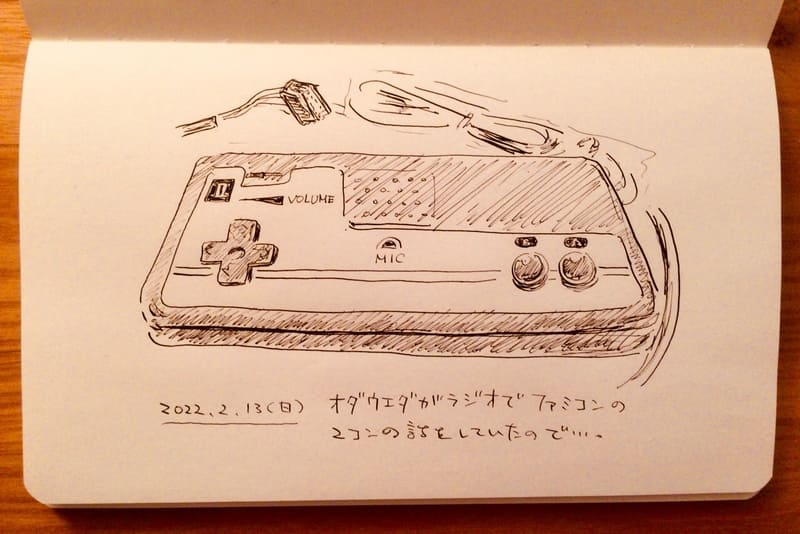 II
VOLUME
MIC
B A
2022.2.13(日) オダウエダがラジオでファミコンの
2コンの話をしていたので…。